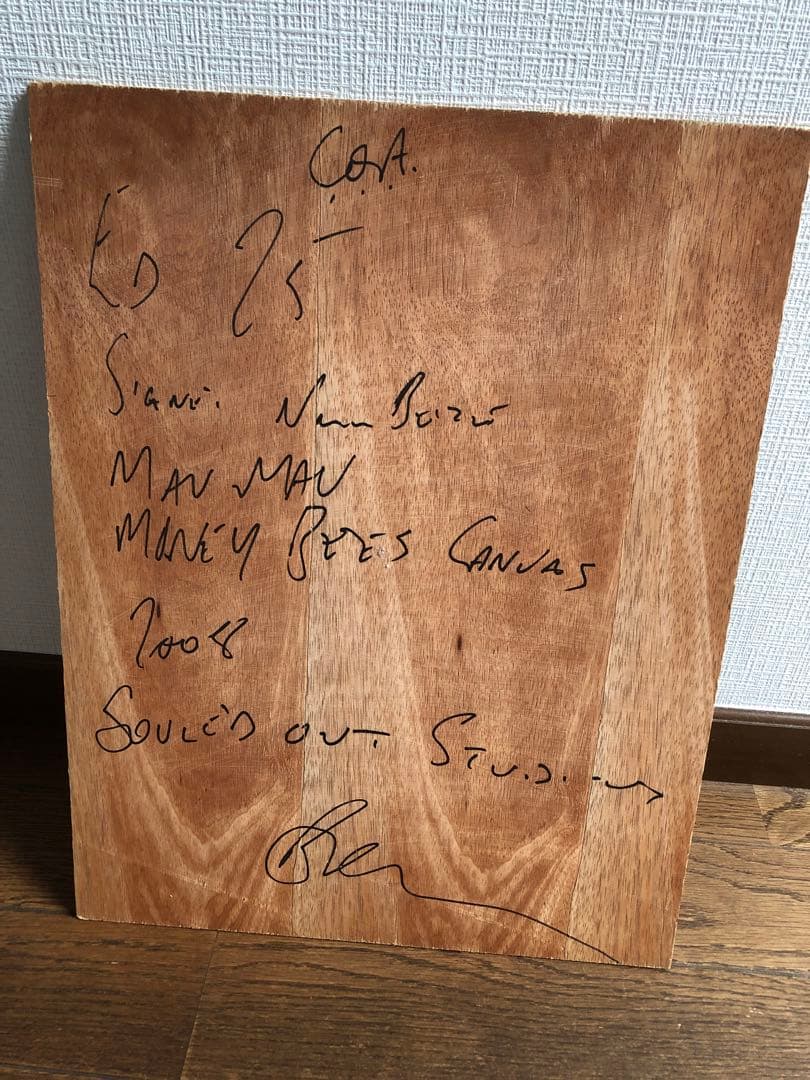 C.O.A.
ED 25
SIGNED.
MAU MAU
MONEY BEES CANVAS
2008
SOULED OUT STUDIOS